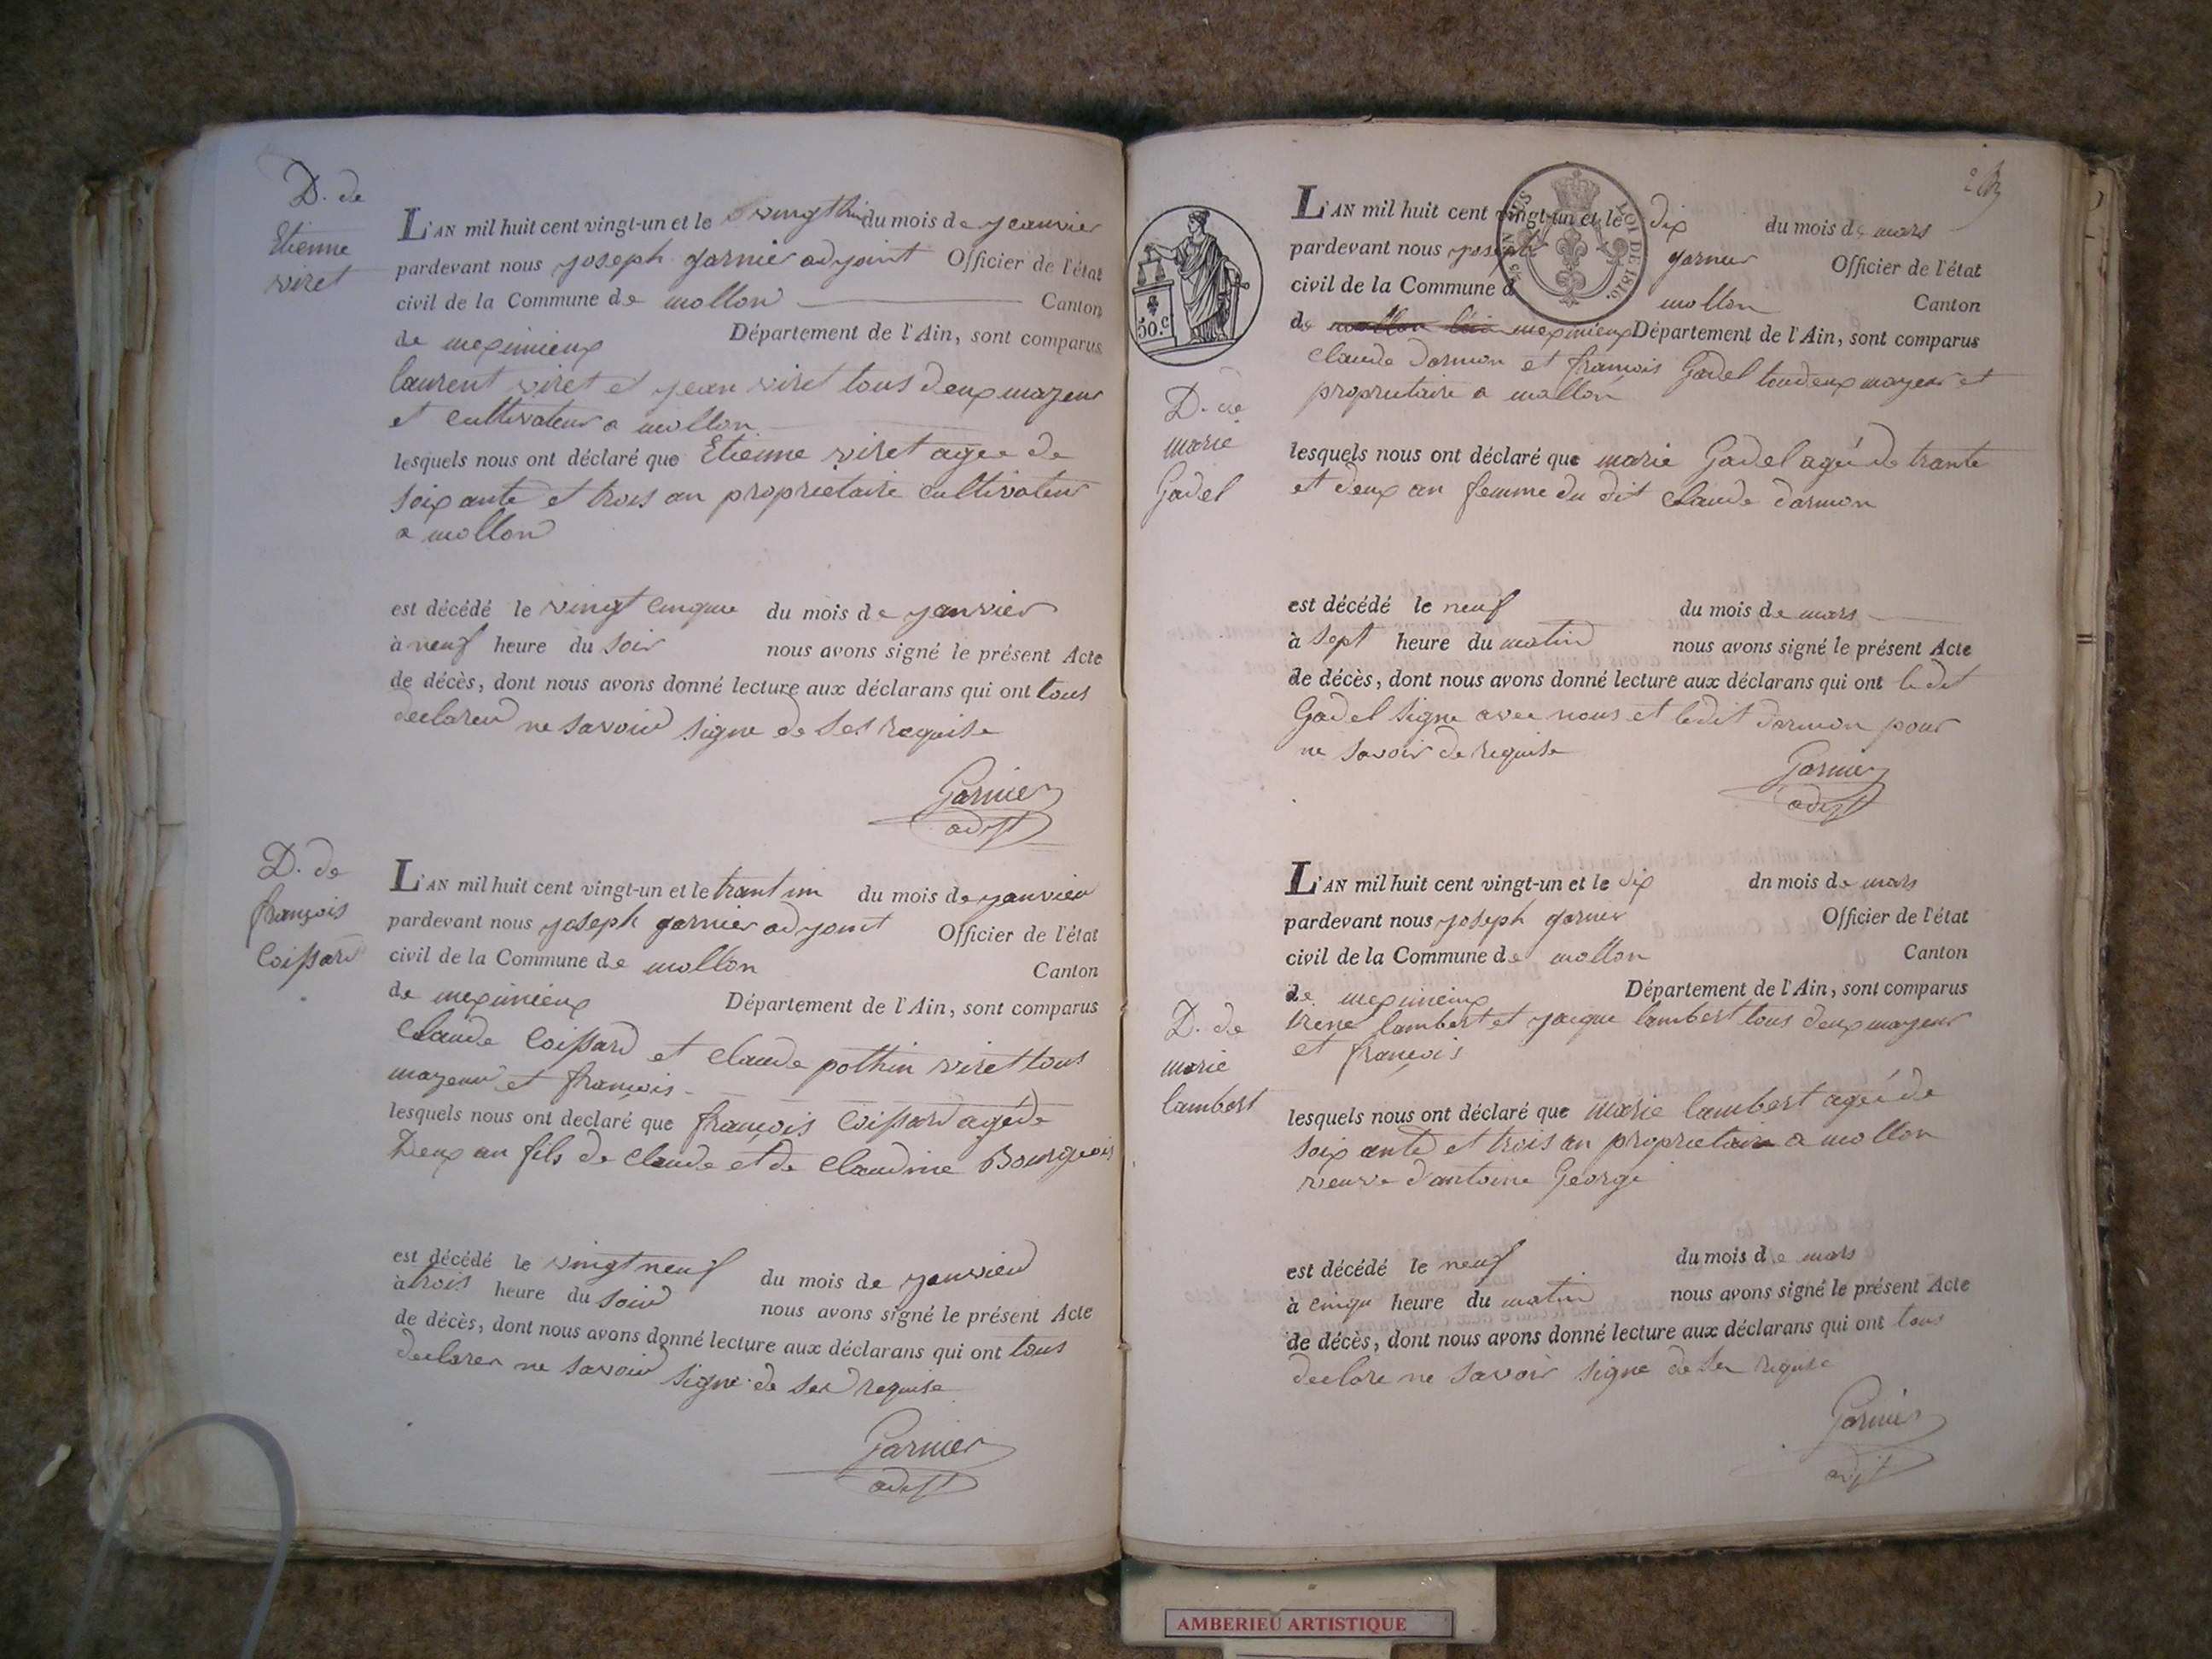 D. de
Etienne
viret
L'AN mil huit cent vingt-un et le du mois de jeanvier
pardevant nous joseph garnier adjoint Officier de l'état
civil de la Commune de mollon Canton
de meximieux Département de l'Ain, sont comparus
laurent viret et jean viret tous deux mazeur
et cultivateur a mollon
lesquels nous ont déclaré que Etienne viret agee de
soixante et trois an proprietaire cultivateur
a mollon
est décédé le vingt cinque du mois de janvier
à neuf heure du soir nous avons signé le présent Acte
de décès, dont nous avons donné lecture aux déclarans qui ont tous
declarer ne savoir signe de ses requise
Garnier
adjt
D. de
françois
Coissard
L'AN mil huit cent vingt-un et le trant un du mois de janvier
pardevant nous joseph garnier adjoint Officier de l'état
civil de la Commune de mollon Canton
de meximieux Département de l'Ain, sont comparus
Claude Coissard et Claude pothin viret tous
mazeur et françois
lesquels nous ont declaré que françois Coissard agé de
Deux an fils de Claude et de Claudine Bourgeois
est décédé le vingt neuf du mois de janvier
à trois heure du soir nous avons signé le présent Acte
de décès, dont nous avons donné lecture aux déclarans qui ont tous
declarer ne savoir signe de ses requise
Garnier
adjt
50.c
LOI DE 1816.
L'AN mil huit cent vingt-un et le dix du mois de mars
pardevant nous joseph garnier Officier de l'état
civil de la Commune d mollon Canton
de meximieux Département de l'Ain, sont comparus
Claude darmon et françois Gadel toudeux mayeur et
proprietaire a mollon
D. de
marie
Gadel
lesquels nous ont déclaré que marie Gadel ageé de trante
et deux an femme du dit Claude darmon
est décédé le neuf du mois de mars
à sept heure du matin nous avons signé le présent Acte
de décès, dont nous avons donné lecture aux déclarans qui ont le dit
Gadel signe avec nous et ledit darmon pour
ne savoir de requise
Garnier
adjt
L'AN mil huit cent vingt-un et le dix dn mois de mars
pardevant nous joseph garnier Officier de l'état
civil de la Commune de mollon Canton
de meximieux Département de l'Ain, sont comparus
lambert et jacque lambert tous deux mayeur
et françois
D. de
marie
lambert
lesquels nous ont déclaré que marie lambert ageé de
soixante et trois an proprietaire a mollon
veuve d'antoine George
est décédé le neuf du mois de mars
à cinqu heure du matin nous avons signé le présent Acte
de décès, dont nous avons donné lecture aux déclarans qui ont tous
declare ne savoir signe de ser requise
Garnier
adjt
AMBERIEU ARTISTIQUE